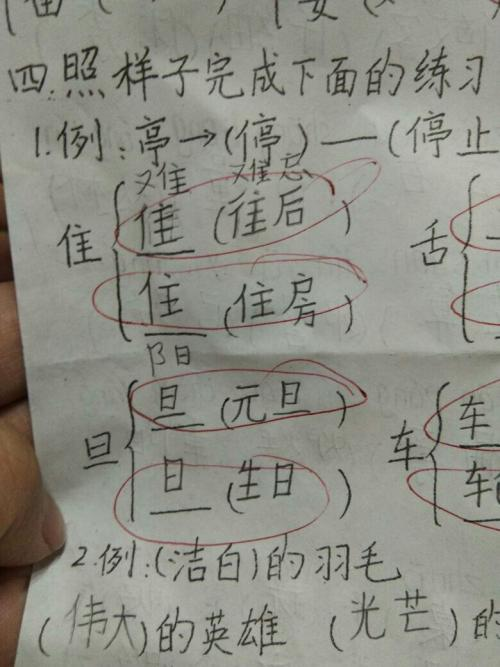 四.照样子完成下面的练习
1.例:亭→(停)—(停止
难 难忘
住 隹 (往后 )
住 (住房 )
阳
旦 旦 (元旦 )
日 (生日 )
舌
车 车
2.例:(洁白)的羽毛
(伟大)的英雄 (光芒)的